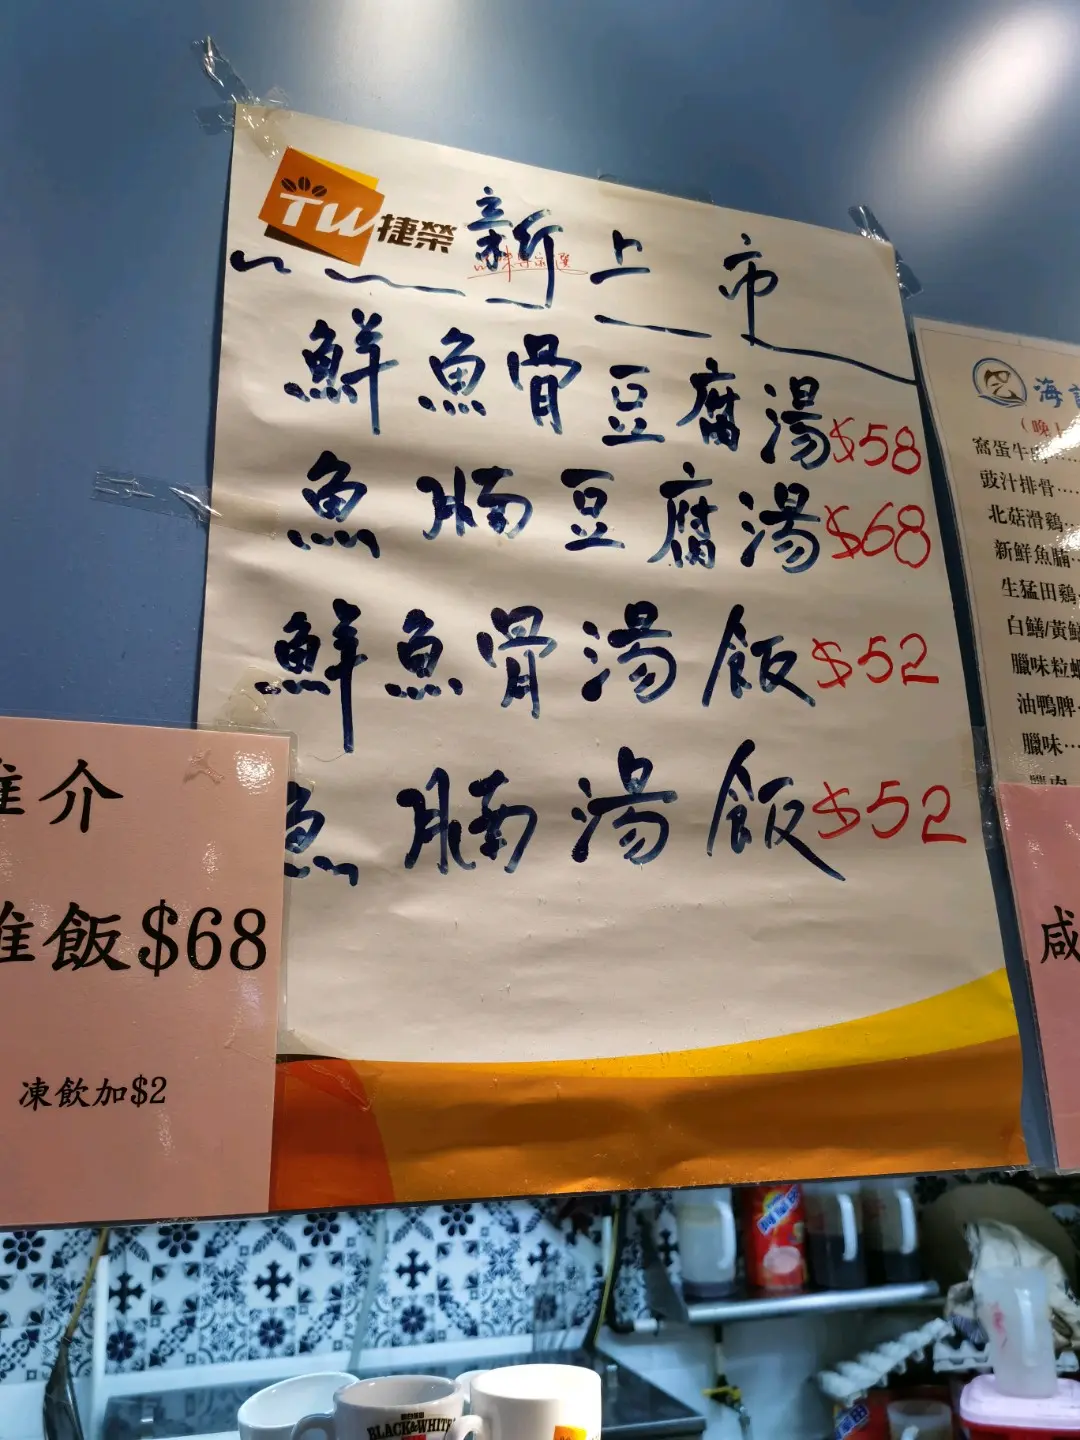 TW 捷榮
新上市
鮮魚骨豆腐湯$58
魚腩豆腐湯$68
鮮魚骨湯飯$52
魚腩湯飯$52
推介
飯$68
凍飲加$2
海
(晚上
窩蛋牛肉
豉汁排骨
北菇滑鷄
新鮮魚腩
生猛田鷄
白鱔/黃鱔
臘味粒
油鴨脾
臘味
咸
BLACK&WHITE